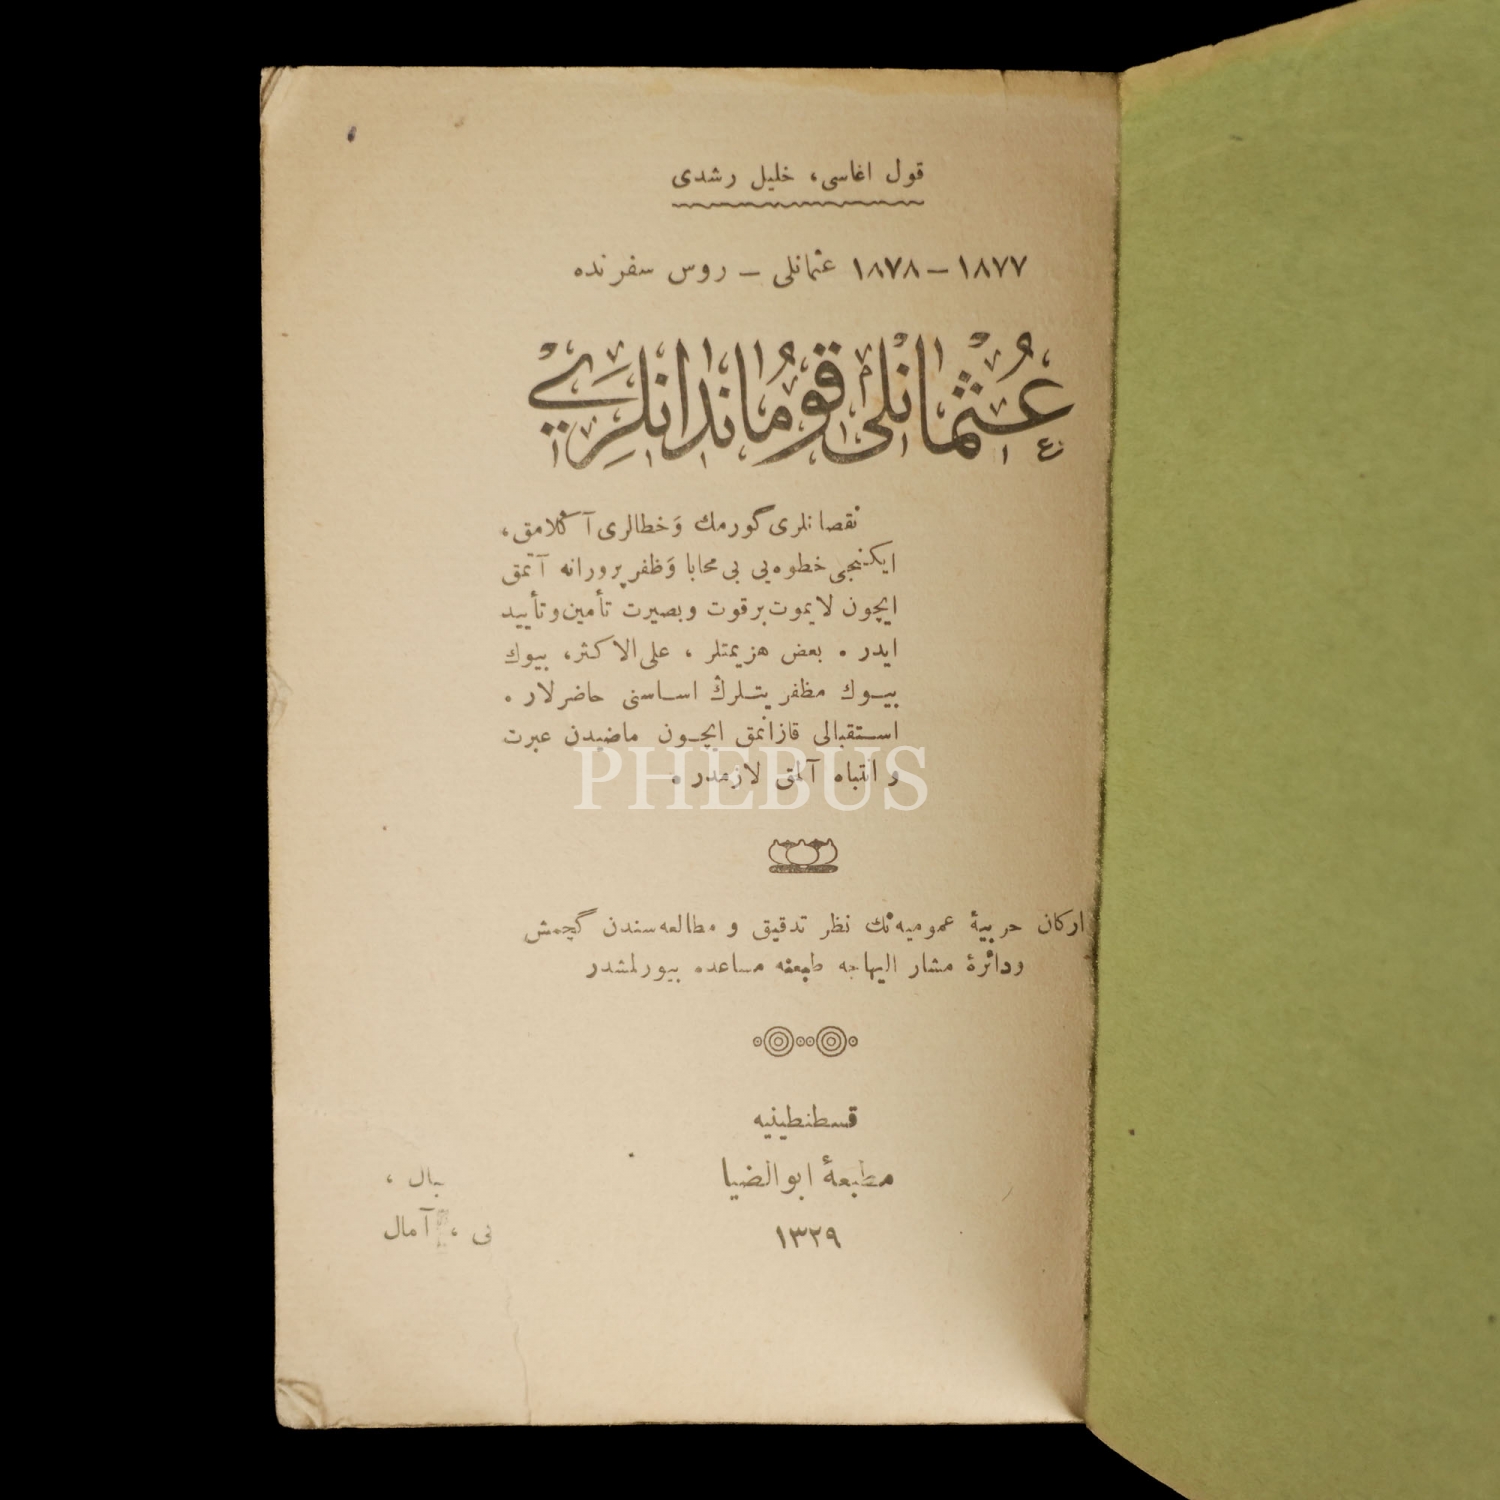 قول اغاسی، خلیل رشدی
١٨٧٧ – ١٨٧٨ عثمانلی – روس سفرنده
عُثمانلی قوماندانلری
نقصانلری گورمك وَخطالری آڭلامق،
ایكنجی خطوه‌یی بی محابا وَظفرپرورانه آتمق
ایچون لایموت برقوت وبصیرت تأمین وتأیید
ایدر . بعض هزیمتلر ، علی الاكثر، بیوك
بیوك مظفریتلرڭ اساسنی حاضرلار .
استقبالی قازانمق ایچون ماضیدن عبرت
و انتباه آلمق لازمدر .
PHEBUS
اركان حربیهٔ عمومیه‌نڭ نظر تدقیق و مطالعه‌سندن گچمش
ودائرهٔ مشار الیهاجه طبعنه مساعده بیورلمشدر
قسطنطینیه
مطبعهٔ ابوالضیا
١٣٢٩
آمال